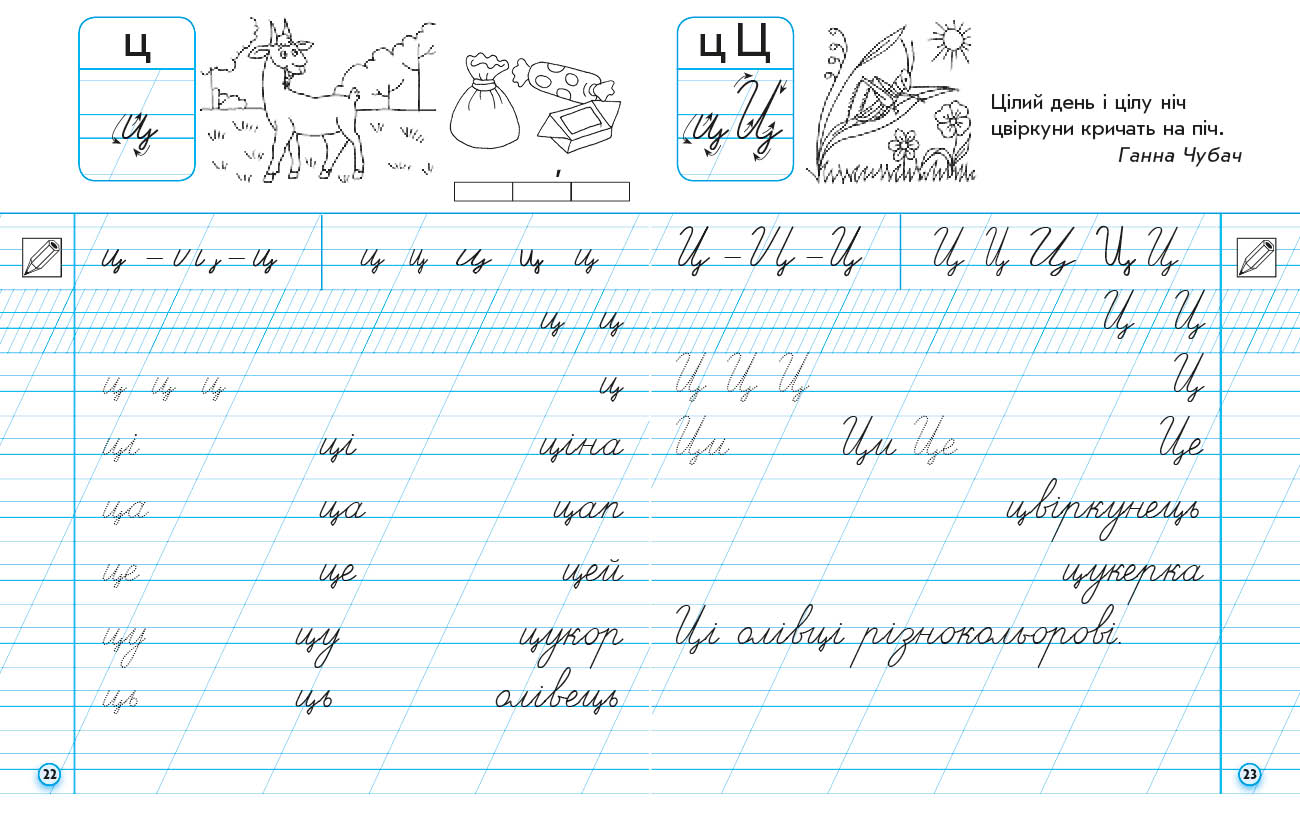 ц
ц
ц Ц
ц Ц
Цілий день і цілу ніч
цвіркуни кричать на піч.
Ганна Чубач
ц – – ц
ц ц ц ц ц
ц ц
ц ц ц ц
ці ці ціна
ца ца цап
це це цей
цу цу цукор
ць ць олівець
22
Ц – – Ц
Ц Ц Ц Ц Ц
Ц Ц
Ц Ц Ц Ц
Ци Ци Це Це
цвіркунець
цукерка
Ці олівці різнокольорові.
23